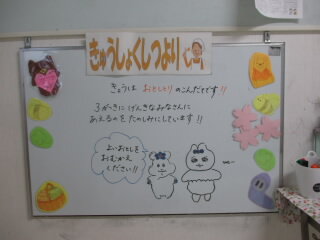 きゅうしょくしつより
きょうは おとしとり のこんだてです!!
3がっきに げんきなみなさんに
あえるのを たのしみにしています!!
よいおとしを
おむかえ
ください!!